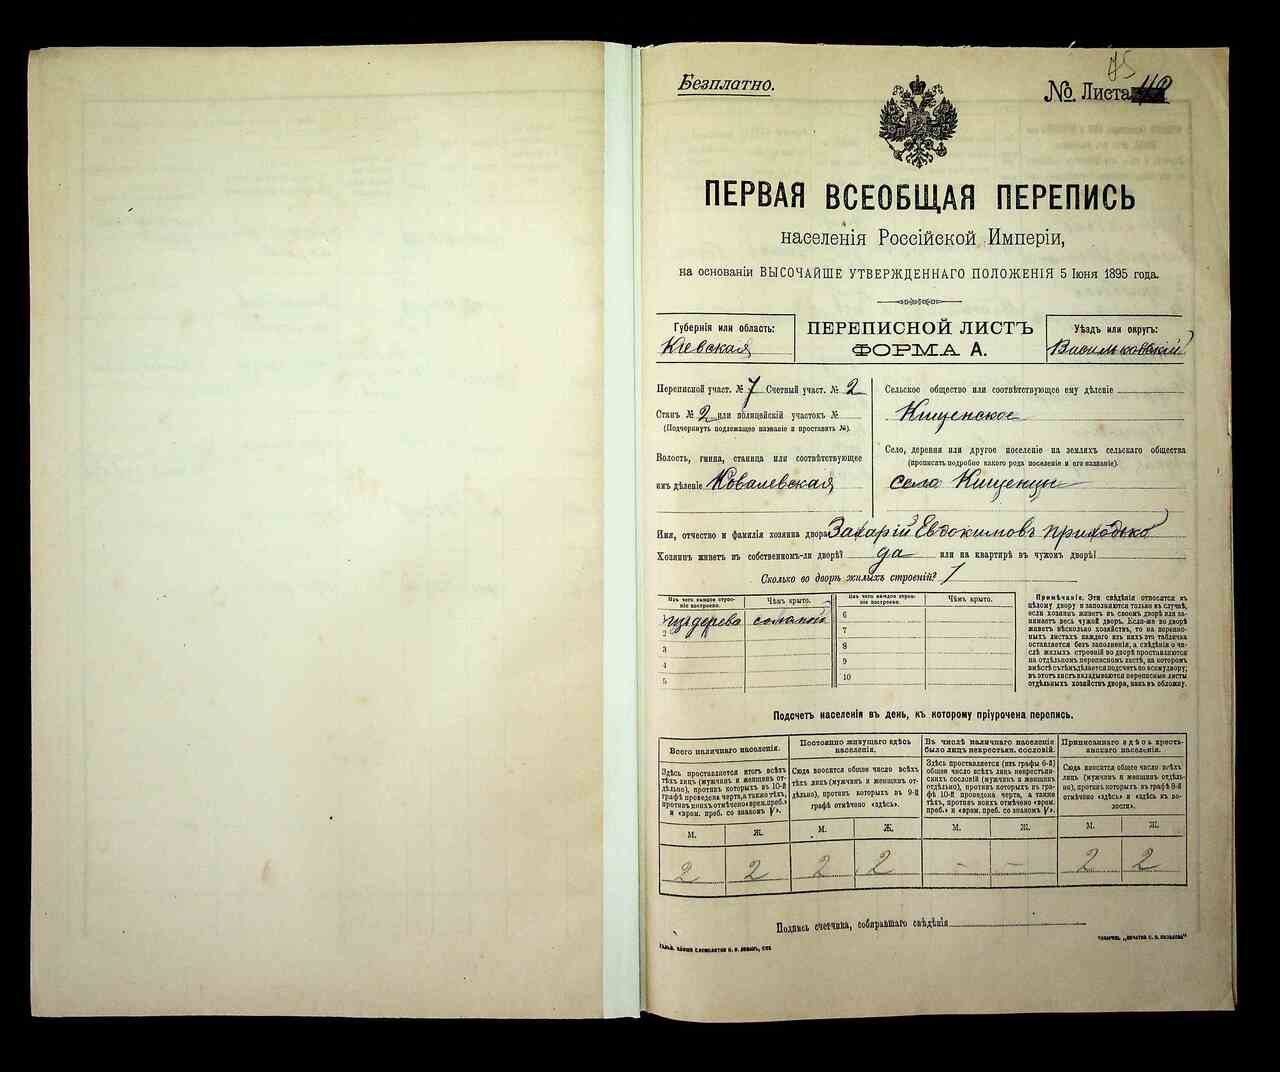 75
Безплатно.
№ Листа 42
ПЕРВАЯ ВСЕОБЩАЯ ПЕРЕПИСЬ
населенія Россійской Имперіи,
на основаніи ВЫСОЧАЙШЕ УТВЕРЖДЕННАГО ПОЛОЖЕНІЯ 5 Іюня 1895 года.
Губернія или область:
Кіевская
ПЕРЕПИСНОЙ ЛИСТЪ
ФОРМА А.
Уѣздъ или округъ:
Васильковскій
Переписной участ. № 7 Счетный участ. № 2
Станъ № 2 или полицейскій участокъ №
(Подчеркнуть подлежащее названіе и проставить №).
Волость, гмина, станица или соотвѣтствующее
имъ дѣленіе Ковалевская
Сельское общество или соотвѣтствующее ему дѣленіе
Кищенское
Село, деревня или другое поселеніе на земляхъ сельскаго общества
(прописать подробно какого рода поселеніе и его названіе).
село Кищенцы
Имя, отчество и фамилія хозяина двора Захарій Евдокимовъ Приходько
Хозяинъ живетъ въ собственномъ-ли дворѣ? да или на квартирѣ въ чужомъ дворѣ?
Сколько во дворѣ жилыхъ строеній? 1
Изъ чего каждое строе-
ніе построено.
Чѣмъ крыто.
Изъ чего каждое строе-
ніе построено.
Чѣмъ крыто.
1 изъ дерева соломой
2
3
4
5
6
7
8
9
10
Примѣчаніе. Эти свѣдѣнія относятся къ
цѣлому двору и заполняются только въ случаѣ,
если хозяинъ живетъ въ своемъ дворѣ или за-
нимаетъ весь чужой дворъ. Если-же во дворѣ
живетъ нѣсколько хозяйствъ, то на перепис-
ныхъ листахъ каждаго изъ нихъ эта табличка
оставляется безъ заполненія, а свѣдѣнія о чи-
слѣ жилыхъ строеній во дворѣ проставляются
на отдѣльномъ переписномъ листѣ, на которомъ
вмѣстѣ съ тѣмъ дѣлается подсчетъ по всему двору;
въ этотъ листъ вкладываются переписные листы
отдѣльныхъ хозяйствъ двора, какъ въ обложку.
Подсчетъ населенія въ день, къ которому пріурочена перепись.
Всего наличнаго населенія.
Здѣсь проставляется итогъ всѣхъ
тѣхъ лицъ (мужчинъ и женщинъ от-
дѣльно), противъ которыхъ въ 10-й
графѣ проведена черта, а также тѣхъ,
противъ коихъ отмѣчено «врем. преб.»
и «врем. преб. со знакомъ V».
Постоянно живущаго здѣсь
населенія.
Сюда вносится общее число всѣхъ
тѣхъ лицъ (мужчинъ и женщинъ от-
дѣльно), противъ которыхъ въ 9-й
графѣ отмѣчено «здѣсь».
Въ числѣ наличнаго населенія
было лицъ некрестьян. сословій.
Здѣсь проставляется (изъ графы 6-й)
общее число всѣхъ лицъ некрестьян-
скихъ сословій (мужчинъ и женщинъ
отдѣльно), противъ которыхъ въ гра-
фѣ 10-й проведена черта, а также
тѣхъ, противъ коихъ отмѣчено «врем.
преб.» и «врем. преб. со знакомъ V».
Приписаннаго здѣсь кресть-
янскаго населенія.
Сюда вносится общее число всѣхъ
лицъ (мужчинъ и женщинъ отдѣль-
но), противъ которыхъ въ графѣ 8-й
отмѣчено «здѣсь» и «здѣсь въ во-
лости».
М. Ж. М. Ж. М. Ж. М. Ж.
2 2 2 2 - - 2 2
Подпись счетчика, собиравшаго свѣдѣнія